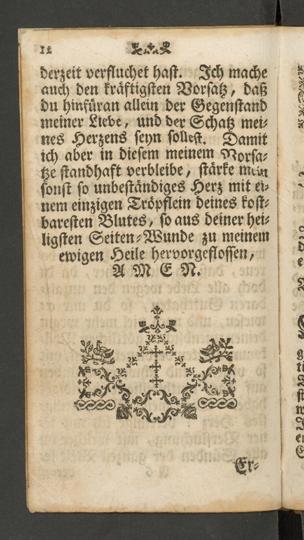 12
derzeit verfluchet hast. Ich mache
auch den kräftigsten Vorsatz, daß
du hinfüran allein der Gegenstand
meiner Liebe, und der Schatz mei-
nes Herzens seyn sollest. Damit
ich aber in diesem meinem Vorsa-
tze standhaft verbleibe, stärke mein
sonst so unbeständiges Herz mit ei-
nem einzigen Tröpflein deines kost-
baresten Blutes, so aus deiner hei-
ligsten Seiten-Wunde zu meinem
ewigen Heile hervorgeflossen,
A M E N.
Er-